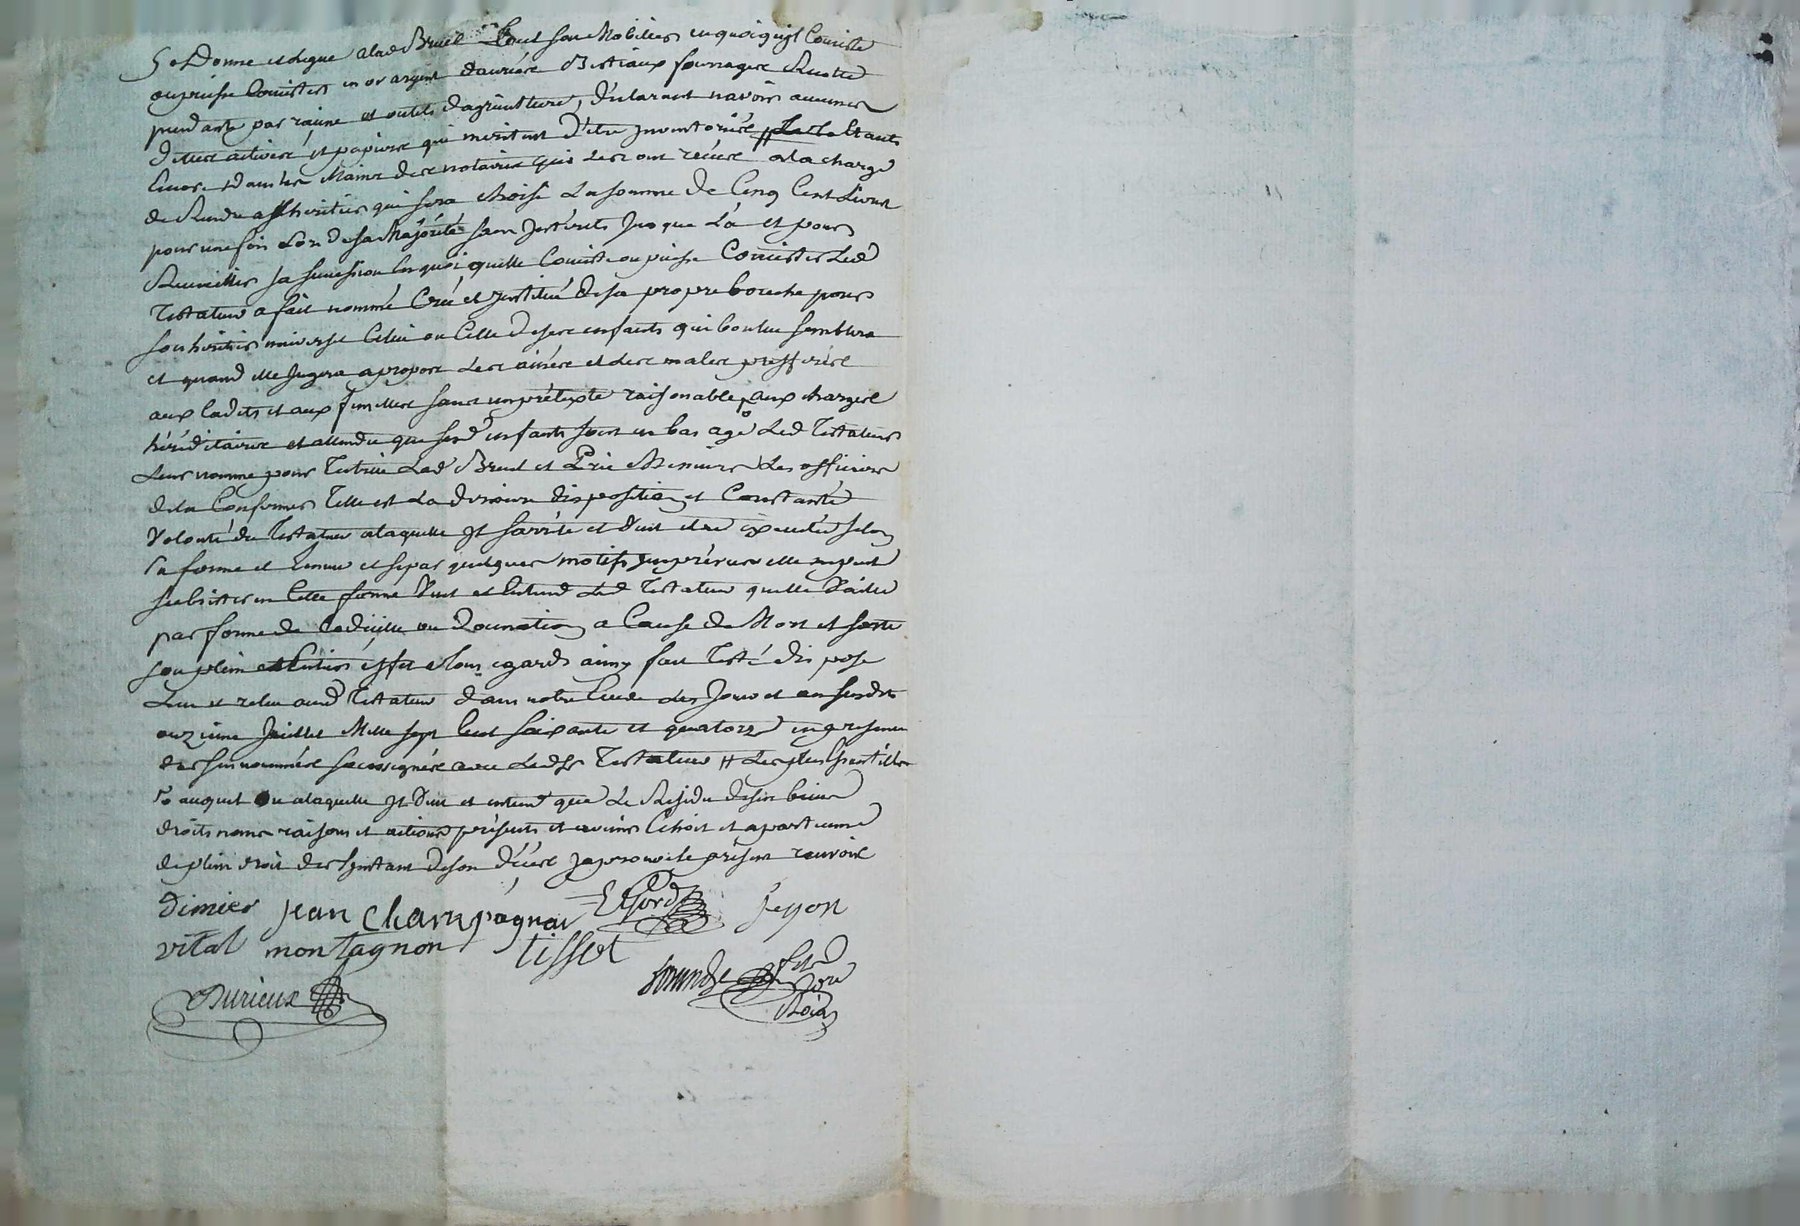 5o Donne et legue alad Breuil tout son Mobilier en quoi quil Consiste
ou puisse Consister en or argent danrées Bestiaux fourrages Recolte
pendante par racine et outils dagriculture, déclarant navoir aucunes
dettes actives et papiers qui meritent d'être jnventoriés
dans les Mains des notaires qui les ont reçues ala charge
de Rendre alheritier qui sera choisi La somme de Cinq Cent Livres
pour une fois Lors desa Majorité sans jnterets jusque Là et pour
Recueillir sa succession en quoi quelle Consiste ou puisse Consister Led
Testateur a fait nommé Créé et jnstitué desa propre bouche pour
son heritier universel Celui ou Celle deses enfants qui bon lui semblera
et quand elle jugera apropos Les ainées et Les males prefferés
aux Cadets et aux femelles sans un prétexte raisonable, aux charges
héréditaires et attendu que sesd enfants sont en bas age Led Testateur
Leur nomme pour Tutrice Lad Breuil et Prie Messieurs Les officiers
dela Confirmer Telle est La derniere disposition et Constante
Volonté du Testateur alaquelle jl sarrête et Veut etre executée selon
sa forme et teneur et si par quelques motifs jmprévus elle ne peut
subsister en Cette forme Veut et Entend Led Testateur quelle Vaille
par forme de Codicille ou Donnation a Cause de Mort et sorte
son plein et Entier effet atous egards ainsy fait Testé dispose
Leu et releu aud Testateur dans notre Etude Les jour et an susdits
onzieme juillet Mille sept Cent soixante et quatorze en presence
des susnommés soussignés avec Led Sr Testateur
auquel ou alaquelle jl Veut et entend que Le Residu deses biens
droits noms raisons et actions présents et avenir Echoit et apartienne
de plein droit des linstant deson décès japrouve le présent renvois
dimier jean Champagnat
jeyson
vital montagnon tisset
Durieux